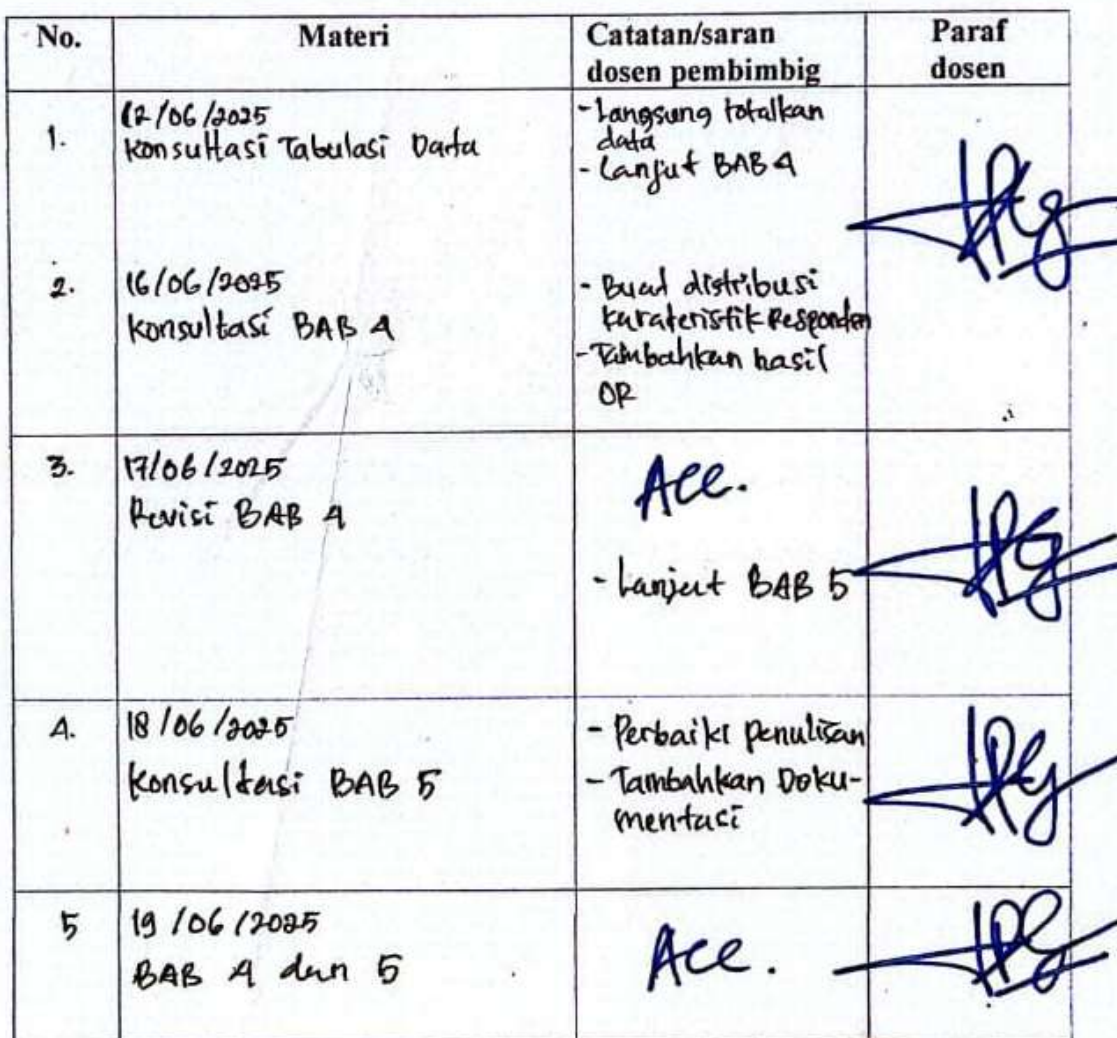 No.
Materi
Catatan/saran
dosen pembimbig
Paraf
dosen
1.
12/06/2025
Konsultasi Tabulasi Data
- Langsung totalkan
data
- Lanjut BAB 4
2.
16/06/2025
Konsultasi BAB 4
- Buat distribusi
karateristik Responden
- Tambahkan hasil
OR
3.
17/06/2025
Revisi BAB 4
Acc.
- Lanjut BAB 5
4.
18/06/2025
Konsultasi BAB 5
- Perbaiki penulisan
- Tambahkan Doku-
mentasi
5
19/06/2025
BAB 4 dan 5
Acc.